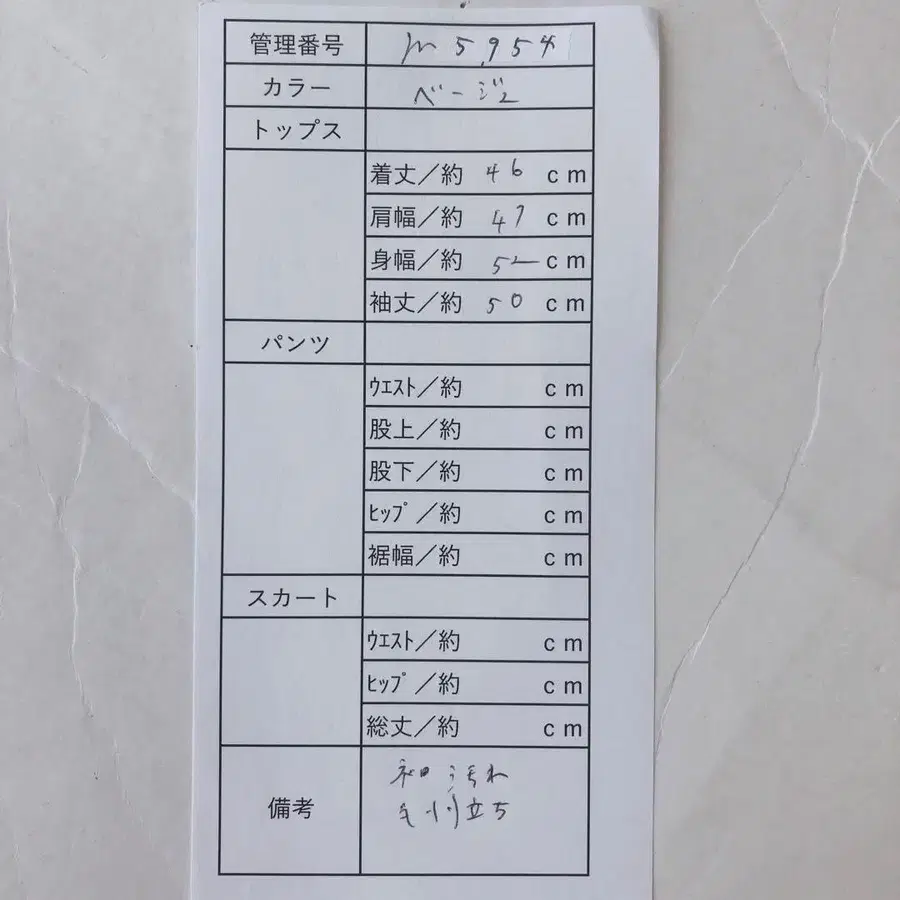 管理番号 m 5954
カラー ベージュ
トップス
着丈／約 46 cm
肩幅／約 47 cm
身幅／約 52 cm
袖丈／約 50 cm
パンツ
ｳｴｽﾄ／約 cm
股上／約 cm
股下／約 cm
ﾋｯﾌﾟ／約 cm
裾幅／約 cm
スカート
ｳｴｽﾄ／約 cm
ﾋｯﾌﾟ／約 cm
総丈／約 cm
備考
袖 汚れ
毛羽立ち